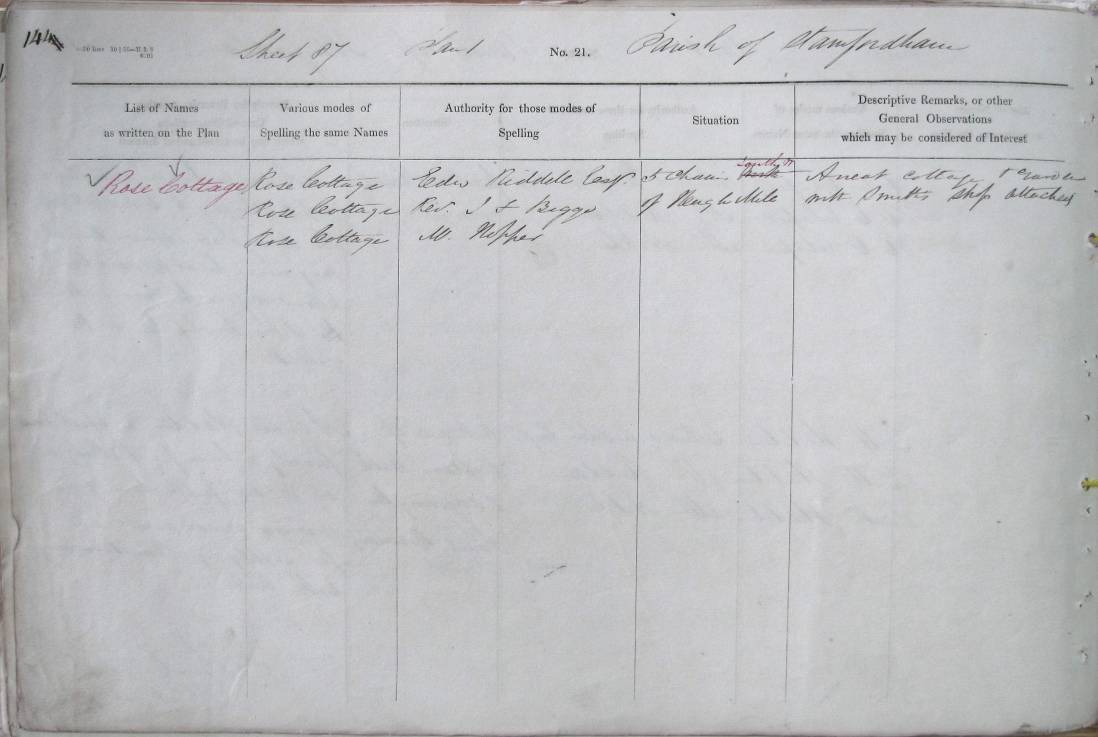 144
Sheet 87 No. 21. Parish of Stamfordham
List of Names
as written on the Plan
Various modes of
Spelling the same Names
Authority for those modes of
Spelling
Situation
Descriptive Remarks, or other
General Observations
which may be considered of Interest
Rose Cottage Rose Cottage Edw Riddell Esqr. 5 Chains South A neat cottage & Garden
Rose Cottage Rev. J F Bigge of Heugh Mile with Smiths Shop attached
Rose Cottage M. Hepper